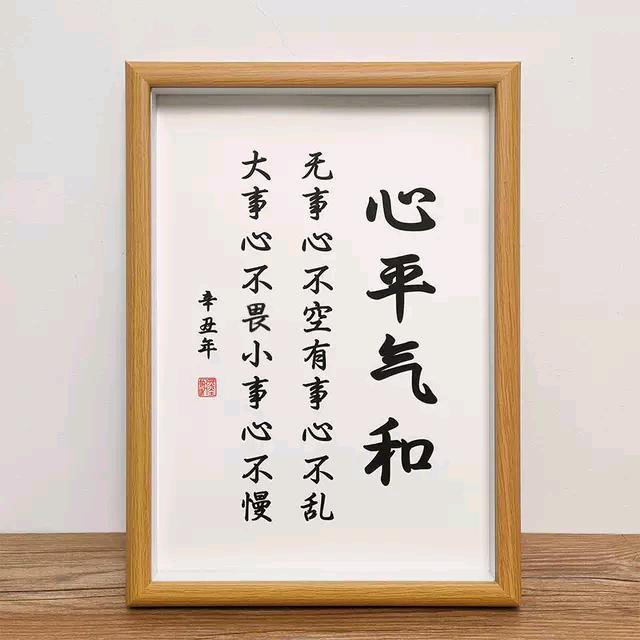 心平气和
无事心不空有事心不乱
大事心不畏小事心不慢
辛丑年